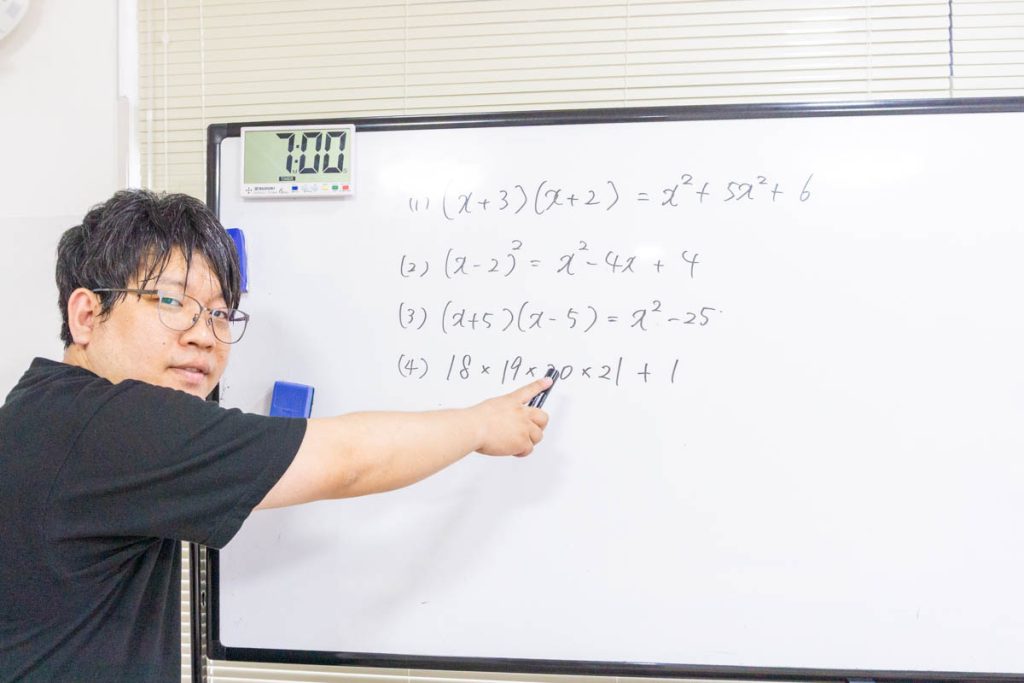 7:00
(1) (x+3)(x+2) = x²+5x²+6
(2) (x-2)² = x²-4x+4
(3) (x+5)(x-5) = x²-25
(4) 18×19×20×21+1